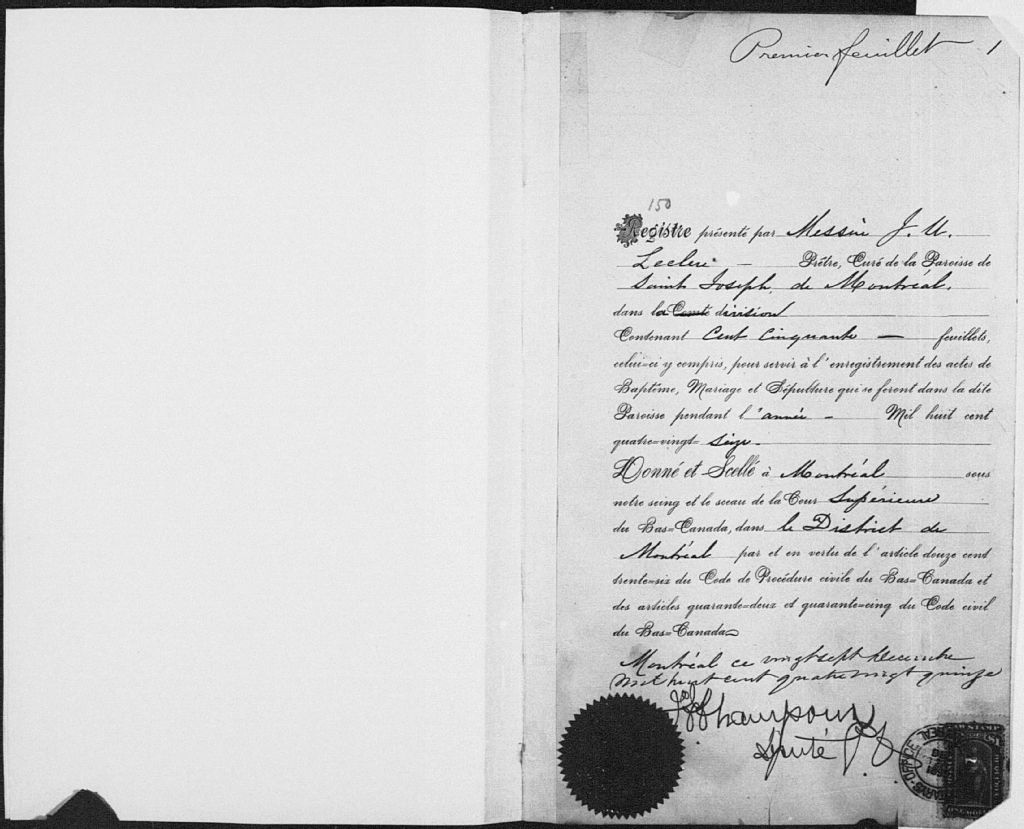 Premier feuillet 1
150
Registre présenté par Messire J. U.
Leclerc — Prêtre, Curé de la Paroisse de
Saint Joseph, de Montréal,
dans la Comté division
Contenant Cent Cinquante — feuillets,
celui-ci y compris, pour servir à l'enregistrement des actes de
Baptême, Mariage et Sépulture qui se feront dans la dite
Paroisse pendant l'année — Mil huit cent
quatre-vingt seize.
Donné et Scellé à Montréal sous
notre seing et le sceau de la Cour Supérieure
du Bas-Canada, dans le District de
Montréal par et en vertu de l'article douze cent
trente-six du Code de Procédure civile du Bas-Canada et
des articles quarante-deux et quarante-cinq du Code civil
du Bas-Canada
Montréal ce vingt sept Decembre
Mil huit cent quatre vingt quinze
Député P.